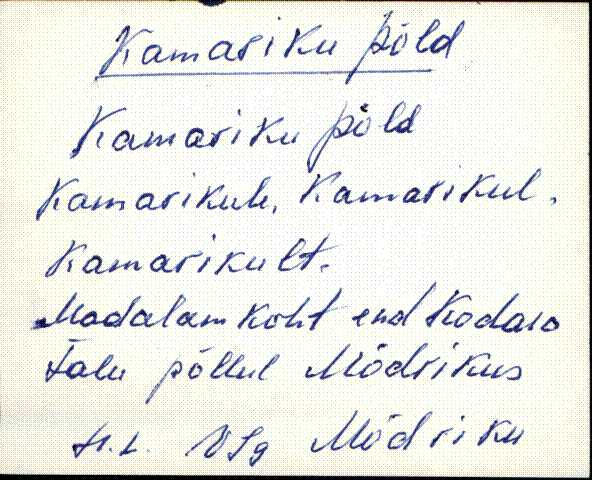 Kamariku põld
Kamariku põld
Kamarikule, Kamarikul,
Kamarikult.
Madalam koht end Kodasa
talu põllul Mõdrikus
VJg Mõdriku